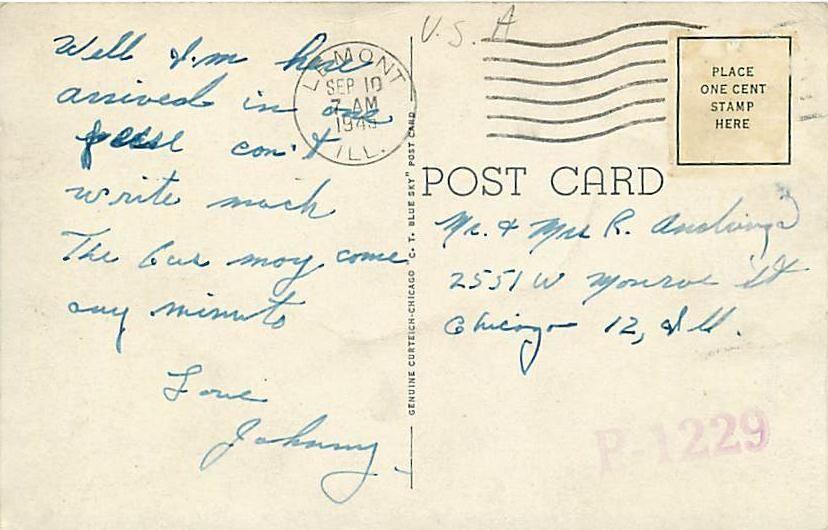 Well I'm here
arrived in one
can't
write much
The bus may come
any minute
Love
Johnny
GENUINE CURTEICH-CHICAGO "C. T. BLUE SKY" POST CARD
U.S.A
LEMONT
SEP 10
7 AM
194
ILL.
PLACE
ONE CENT
STAMP
HERE
POST CARD
Mr. & Mrs R.
2551 W Monroe St
Chicago 12, Ill.
P 1229